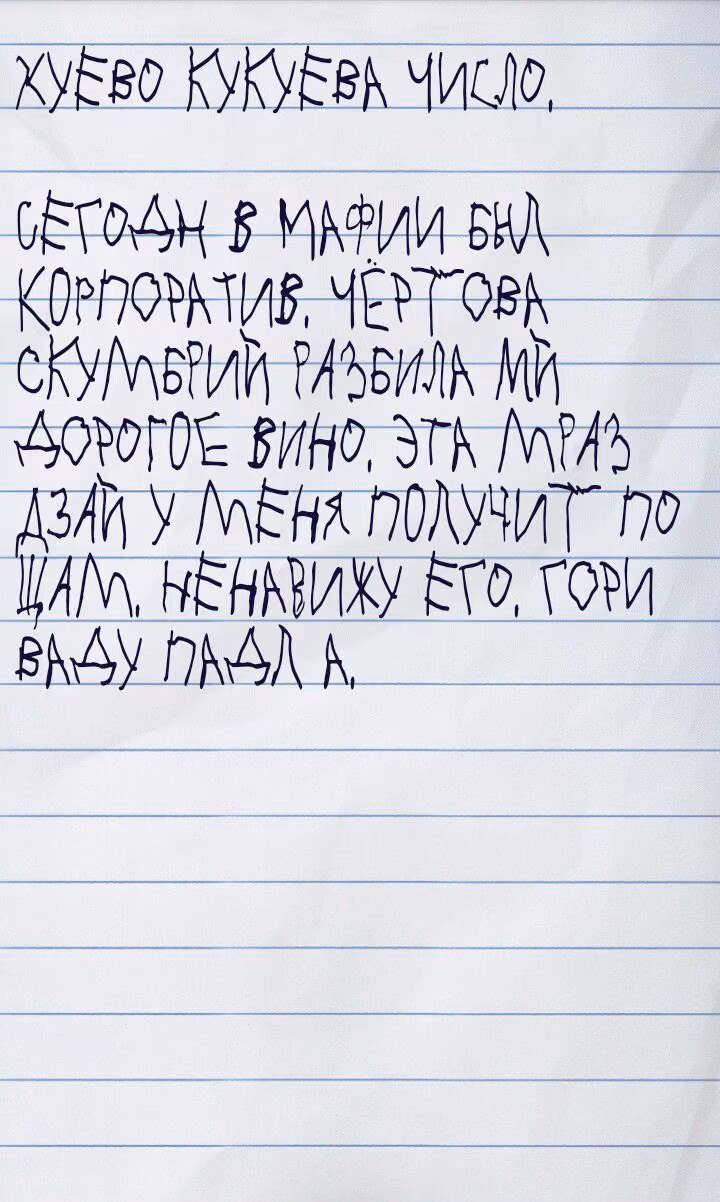 ХУЕВО КУКУЕВА ЧИСЛО.
СЕГОДН В МАФИИ БЫЛ
КОРПОРАТИВ. ЧЁРТОВА
СКУМБРИЙ РАЗБИЛА МЙ
ДОРОГОЕ ВИНО. ЭТА МРАЗ
ДЗАЙ У МЕНЯ ПОЛУЧИТ ПО
ЩАМ. НЕНАВИЖУ ЕГО. ГОРИ
ВАДУ ПАДЛ А.